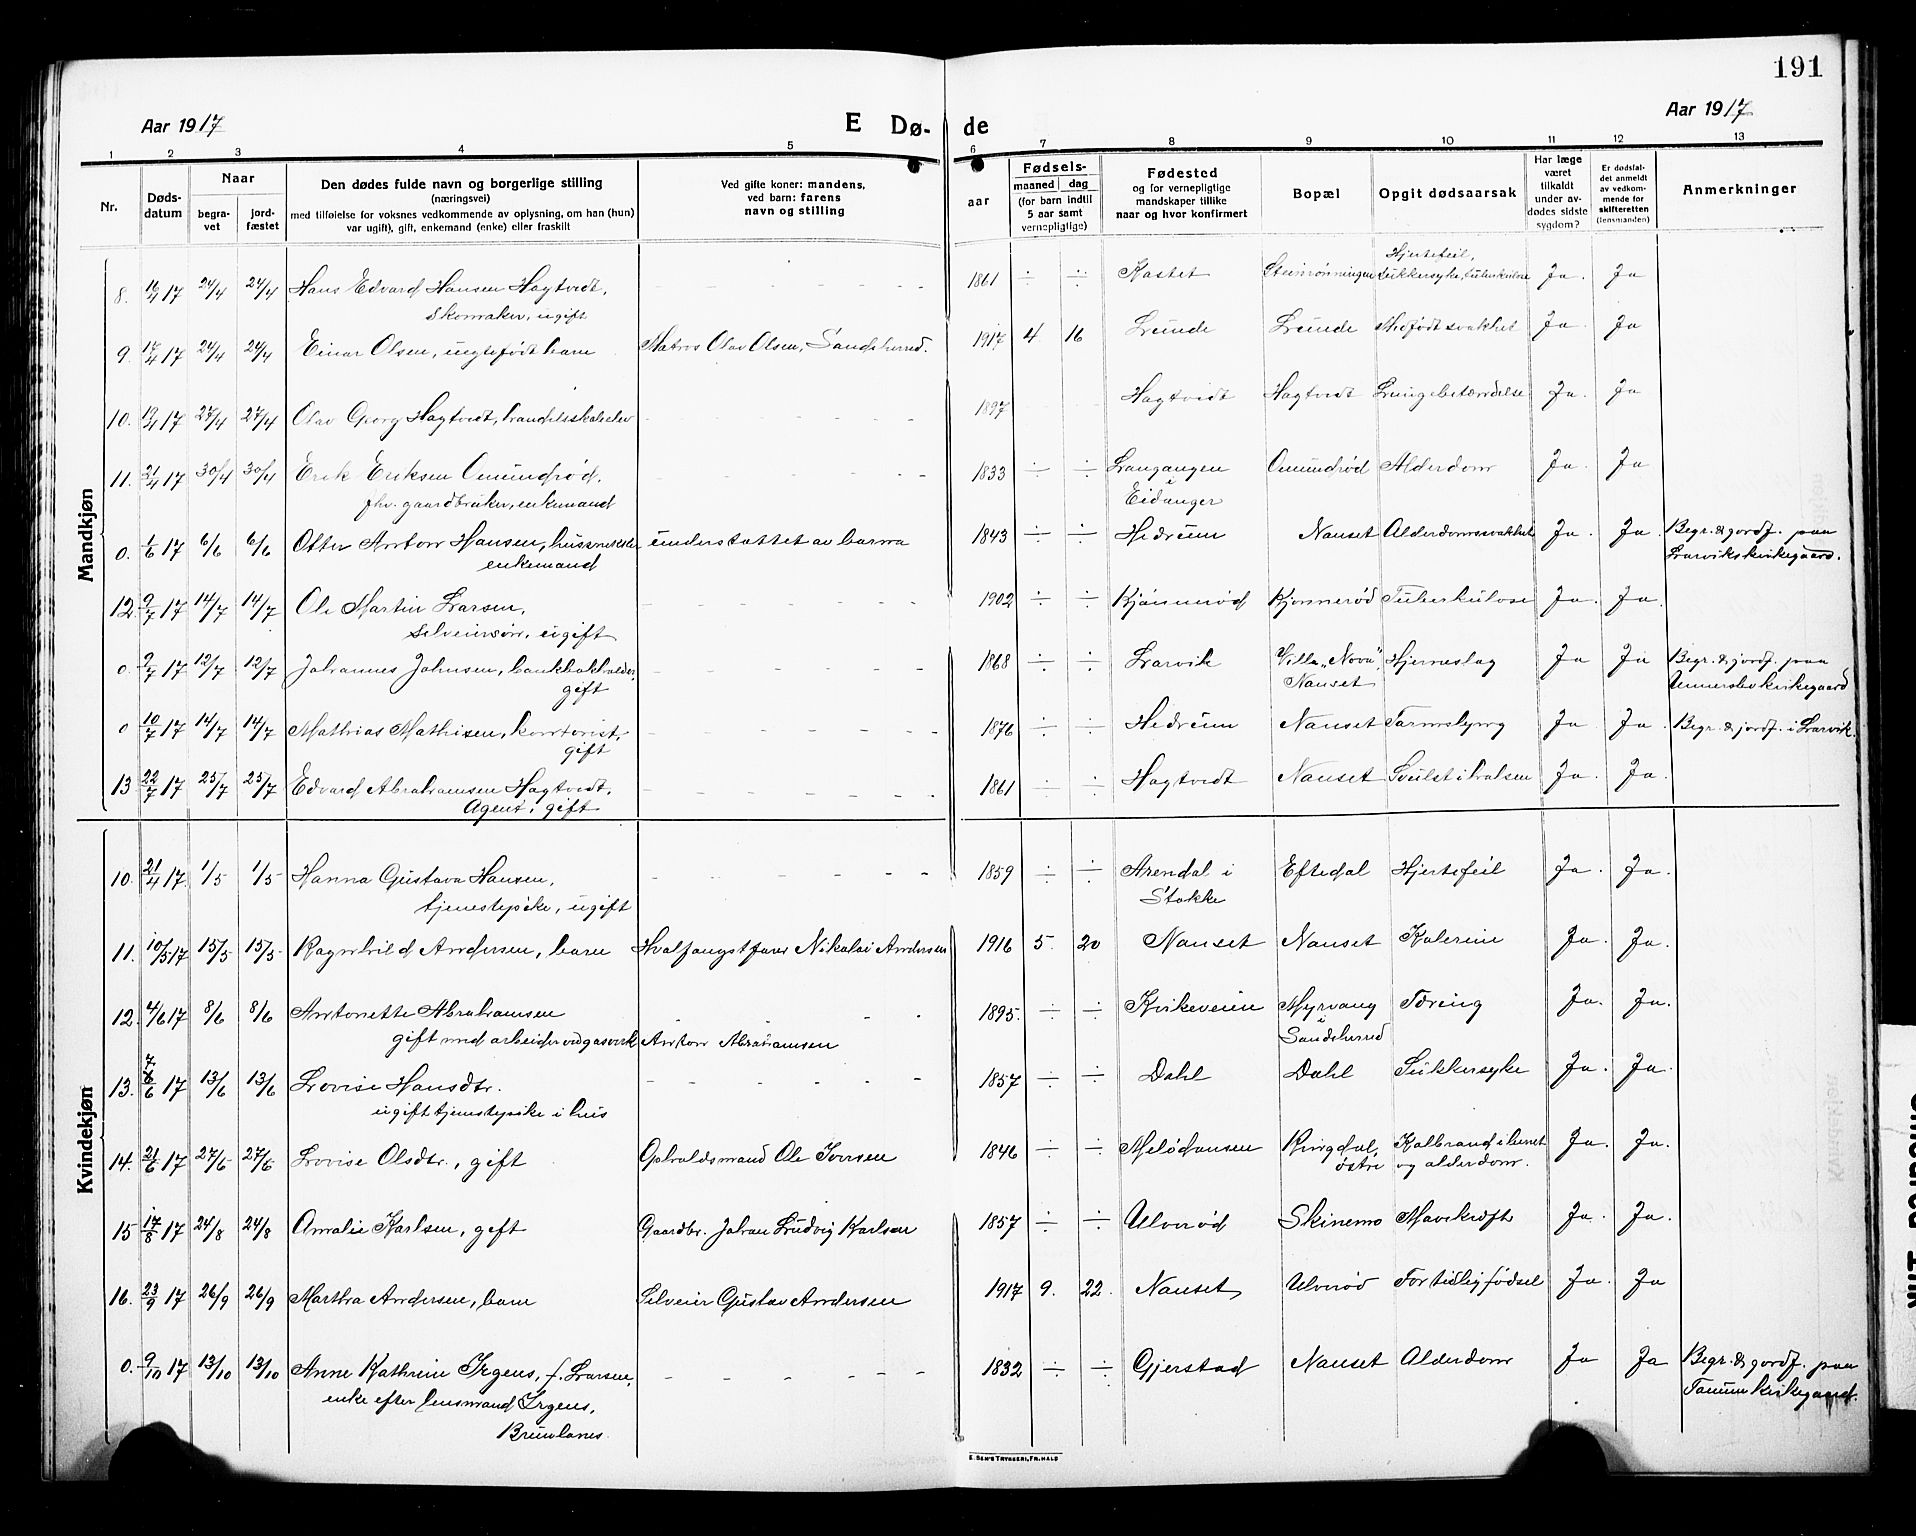 191
Aar 1917
E Dø-
de
Aar 1917
1 2 3 4 5 6 7 8 9 10 11 12 13
Nr.
Døds-
datum
Naar
begra-
vet
jord-
fæstet
Den dødes fulde navn og borgerlige stilling
(næringsvei)
med tilføielse for voksnes vedkommende av oplysning, om han (hun)
var ugift), gift, enkemand (enke) eller fraskilt
Ved gifte koner: mandens,
ved barn: farens
navn og stilling
aar
Fødsels-
maaned dag
(for barn indtil
5 aar samt
vernepligtige)
Fødested
og for vernepligtige
mandskaper tillike
naar og hvor konfirmert
Bopæl
Opgit dødsaarsak
Har læge
været
tilkaldt
under av-
dødes sidste
sygdom?
Er dødsfal-
det anmeldt
av vedkom-
mende for
skifteretten
(lensmanden)
Anmerkninger
Mandkjøn
8. 16/4 17 24/4 24/4 Hans Edvard Hansen Hagtvedt, - - - - - 1861 ÷ ÷ Kastet Steinrønningen Hjertefeil,
skomaker, ugift sukkersyke, tuberkulose Ja. Ja
9. 17/4 17 24/4 24/4 Einar Olsen, uegtefødt barn Matros Olav Olsen, Sandeherred. 1917 4 16 Lunde Lunde Medfødt svakhet Ja. Ja
10. 19/4 17 27/4 27/4 Olav Georg Hagtvedt, handelsskoleelev - - - - - 1897 Hagtvedt Hagtvedt Lungebetændelse Ja. Ja
11. 21/4 17 30/4 30/4 Erik Eriksen Omundrød, - - - - - 1833 ÷ ÷ Langangen Omundrød Alderdom Ja. Ja
fhv. gaardbruker, enkemand i Eidanger
0. 1/6 17 6/6 6/6 Otter Anton Hansen, husmekler understøttet av barna 1843 ÷ ÷ Hedrum Nanset Alderdomssvakhet Ja. Ja. Begr. & jordf. paa
enkemand Larviks kirkegaard.
12. 9/7 17 14/7 14/7 Ole Martin Larsen, - - - - - 1902 ÷ ÷ Kjønnerød Kjønnerød Tuberkulose Ja. Ja.
selveiersøn, ugift
0. 9/7 17 12/7 12/7 Johannes Johnsen, bankbokholder, - - - - - 1868 ÷ ÷ Larvik Villa "Nova", Hjerneslag Ja Ja Begr. & jordf. paa
gift Nanset Undersbo kirkegaard
0 10/7 17 14/7 14/7 Mathias Mathisen, kontorist, - - - - - 1876 ÷ ÷ Hedrum Nanset Tarmslyng Ja Ja. Begr. & jordf. i Larvik.
gift
13 22/7 17 25/7 25/7 Edvard Abrahamsen Hagtvedt, - - - - - 1861 ÷ ÷ Hagtvedt Nanset Svulst i halsen Ja. Ja.
Agent, gift
Kvindekjøn
10. 21/4 17. 1/5 1/5 Hanna Gustava Hansen, - - - - - 1859 ÷ ÷ Arendal i Eftedal Hjertefeil Ja. Ja.
tjenestepike, ugift Stokke
11. 10/5 17 15/5 15/5 Ragnhild Andersen, barn Hvalfangstfører Nikolai Andersen 1916 5. 20 Nanset Nanset Kolerine Ja. Ja.
12. 4/6 17 8/6 8/6 Antonette Abrahamsen - - - 1895. ÷ ÷ Kvikeveien Myrvang Tæring Ja. Ja.
gift med arbeider ved gasverk Anton Abrahamsen i Sandeherred
13. 7/6 17 13/6 13/6 Lovise Hansdtr. - - - - - 1857 ÷ ÷ Dahl Dahl Sukkersyke Ja. Ja
ugift tjenestepike i hus
14. 21/6 17 27/6 27/6 Lovise Olsdtr., gift Opholdsmand Ole Iversen 1846 ÷ ÷ Melødansen Ringdal, Kolbrand i benet Ja. Ja.
østre og alderdom.
15 17/8 17 24/8 24/8 Amalie Karlsen, gift Gaardbr. Johan Ludvig Karlsen 1857 ÷ ÷ Ulverød Skinemo Mavekræft Ja. Ja.
16. 23/9 17 26/9 26/9 Martha Andersen, barn Selveier Gustav Andersen 1917 9. 22. Nanset Ulverød For tidlig fødsel Ja. Ja
0. 9/10 17 13/10 13/10 Anne Kathrine Irgens, f. Larsen, - - - - - 1832 ÷ ÷ Gjerstad Nanset Alderdom Ja Ja Begr. & jordf. paa
enke efter lensmand Irgens, Tanum kirkegaard.
Brunlanes.
E. SEM'S TRYKKERI, FR.HALD